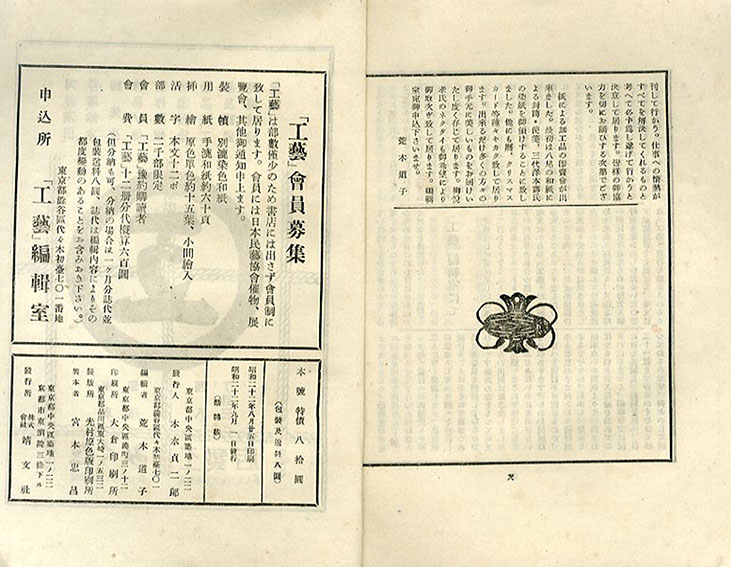 刊して行かう。仕事への情熱が
すべてを解決してくれるものと
考へて必ず為し遂げて行かうと
決意して居ります。皆様の御協
力を切にお願ひする次第でござ
います。
紙による加工品の頒賣會が出
來ました。最初は八尾の和紙に
よる封筒・便箋、三代澤本壽氏
の染紙を御頒けすることに致し
ました。他にも暦、クリスマス
カード等種々キカク致して居り
ます。出來るだけ多くの方々の
御手元に美しいものをお届けい
たし度く存じて居ります。
孝氏のネクタイも御希望により
御取次ぎ致して居ります。編輯
室宛御申込下さいませ。
荒木道子
「工藝」會員募集
「工藝」は部數僅少のため書店には出さず會員制に
致して居ります。會員には日本民藝協會催物、展
覽會、其他御通知申上ます。
裝幀 別漉染色和紙
用紙 手漉和紙約六十頁
挿繪 原色原色約十五葉、小間繪入
活字 本文十二ポ
部數 二千部限定
會員 「工藝」豫約購讀者
會費 「工藝」十二册分代概算六百圓
(但分納も可、分納の場合は一ケ月分誌代並
包裝送料八圓、誌代は編輯内容によりその
都度變動のあることをお含みおき下さい。)
東京都澁谷區代々木初臺七〇一番地
申込所 「工藝」編輯室
本號特價八拾圓
(包裝及送料八圓)
昭和二十二年八月廿五日印刷
昭和二十二年九月一日發行
東京都中央區築地一ノ二二
發行人 木水貞二郎
東京都澁谷區代々木初臺七〇一
編輯者 荒木道子
東京都中央區湊町三ノ十二
印刷所 大倉印刷所
東京都品川區東大崎一ノ五三二
製版所 光村原色版印刷所
製本者 宮本忠昌
東京都中央區築地一ノ二二
京都市東洞院三條下ル
發行所 株式會社 靖文社